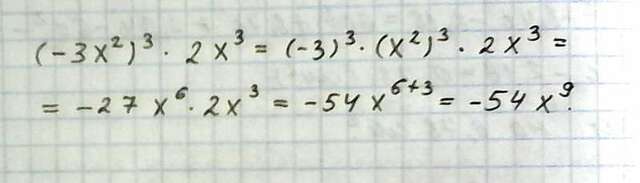 (-3x²)³ · 2x³ = (-3)³ · (x²)³ · 2x³ =
= -27x⁶ · 2x³ = -54x⁶⁺³ = -54x⁹.